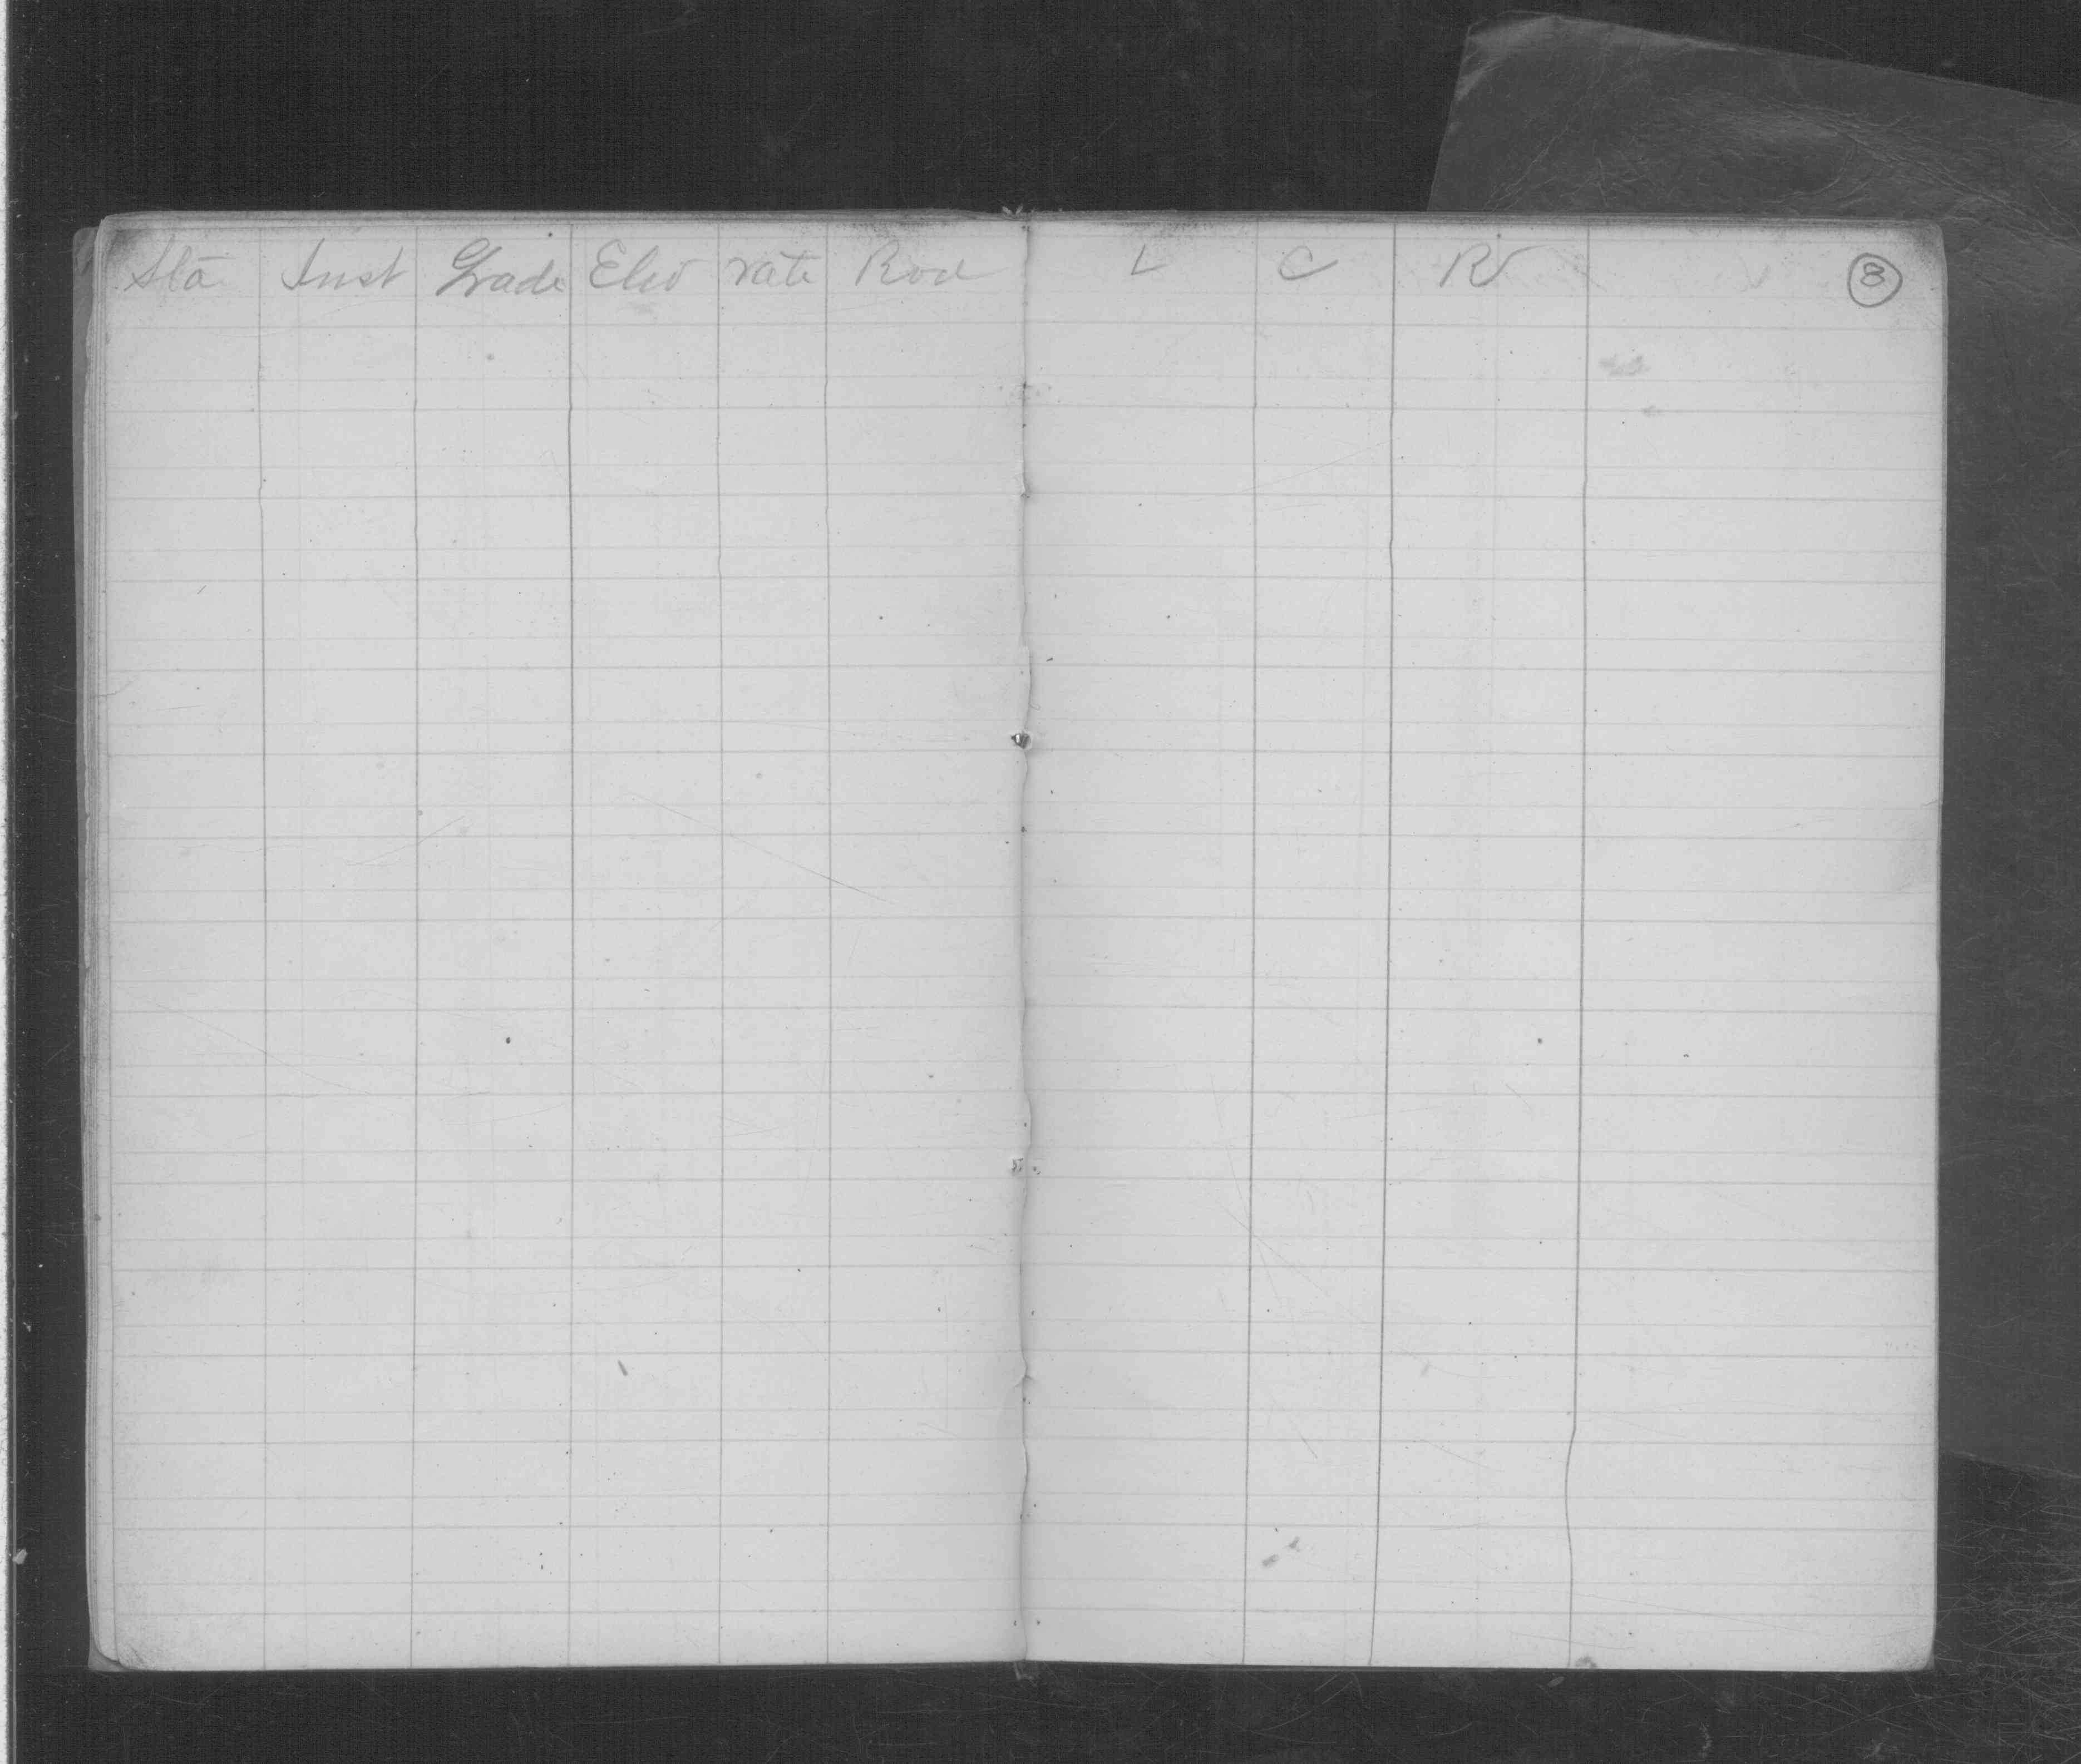 Sta Inst Grade Elev rate Rod L C R 8